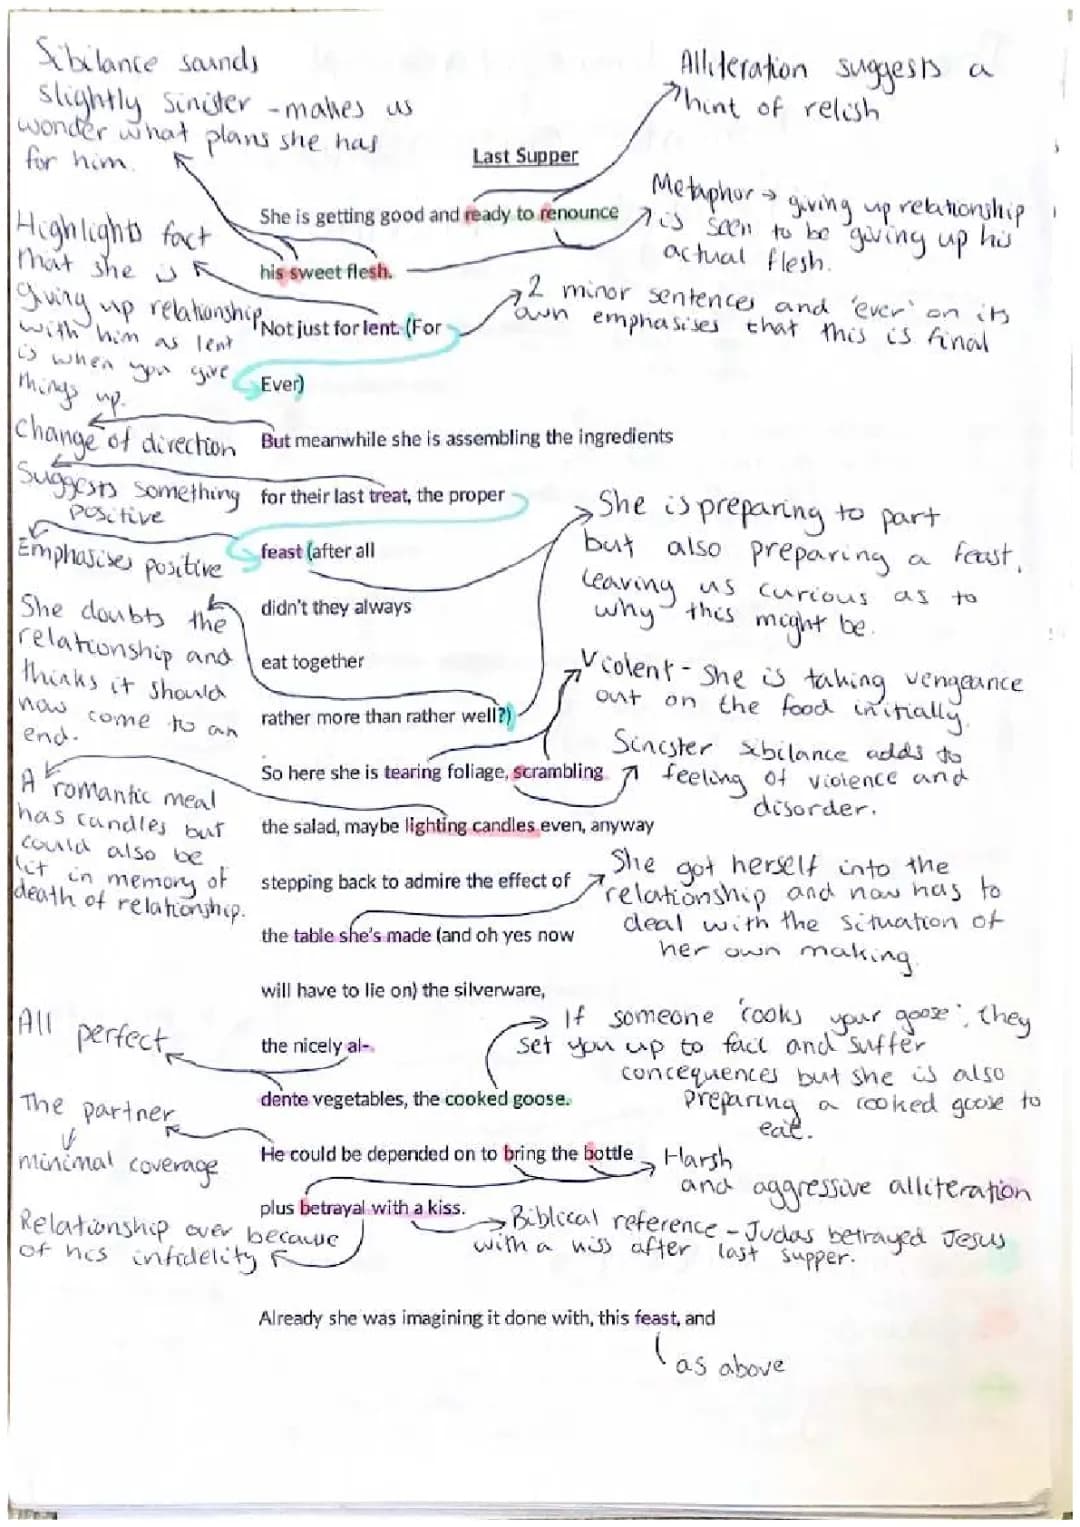 Sibilance sounds
slightly sinister - makes us
wonder what plans she has
for him.
Alliteration suggests a
hint of relish
Last Supper
She is getting good and ready to renounce
his sweet flesh.
Metaphor → giving up relationship
is seen to be giving up his
actual flesh.
Highlights fact
that she is
giving up relationship
with him as lent
is when you give
things up.
Not just for lent. (For
Ever)
2 minor sentences and 'ever' on its
own emphasises that this is final
Change of direction
But meanwhile she is assembling the ingredients
Suggests something
positive
for their last treat, the proper
Emphasises positive
feast (after all
didn't they always
eat together
rather more than rather well?)
She is preparing to part
but also preparing a feast,
leaving us curious as to
why this might be.
She doubts the
relationship and
thinks it should
now come to an
end.
Violent - She is taking vengeance
out on the food initially.
So here she is tearing foliage, scrambling
Sinester sibilance adds to
feeling of violence and
disorder.
A romantic meal
has candles but
could also be
lit in memory of
death of relationship.
the salad, maybe lighting candles even, anyway
stepping back to admire the effect of
the table she's made (and oh yes now
will have to lie on) the silverware,
She got herself into the
relationship and now has to
deal with the situation of
her own making.
All perfect
the nicely al-
dente vegetables, the cooked goose.
If someone 'cooks your goose', they
set you up to fail and suffer
concequences but she is also
preparing a cooked goose to
eat.
The partner
↓
minimal coverage
He could be depended on to bring the bottle
plus betrayal with a kiss.
Harsh
and aggressive alliteration
Relationship over because
of his infidelity
Biblical reference - Judas betrayed Jesus
with a kiss after last supper.
Already she was imagining it done with, this feast, and
as above